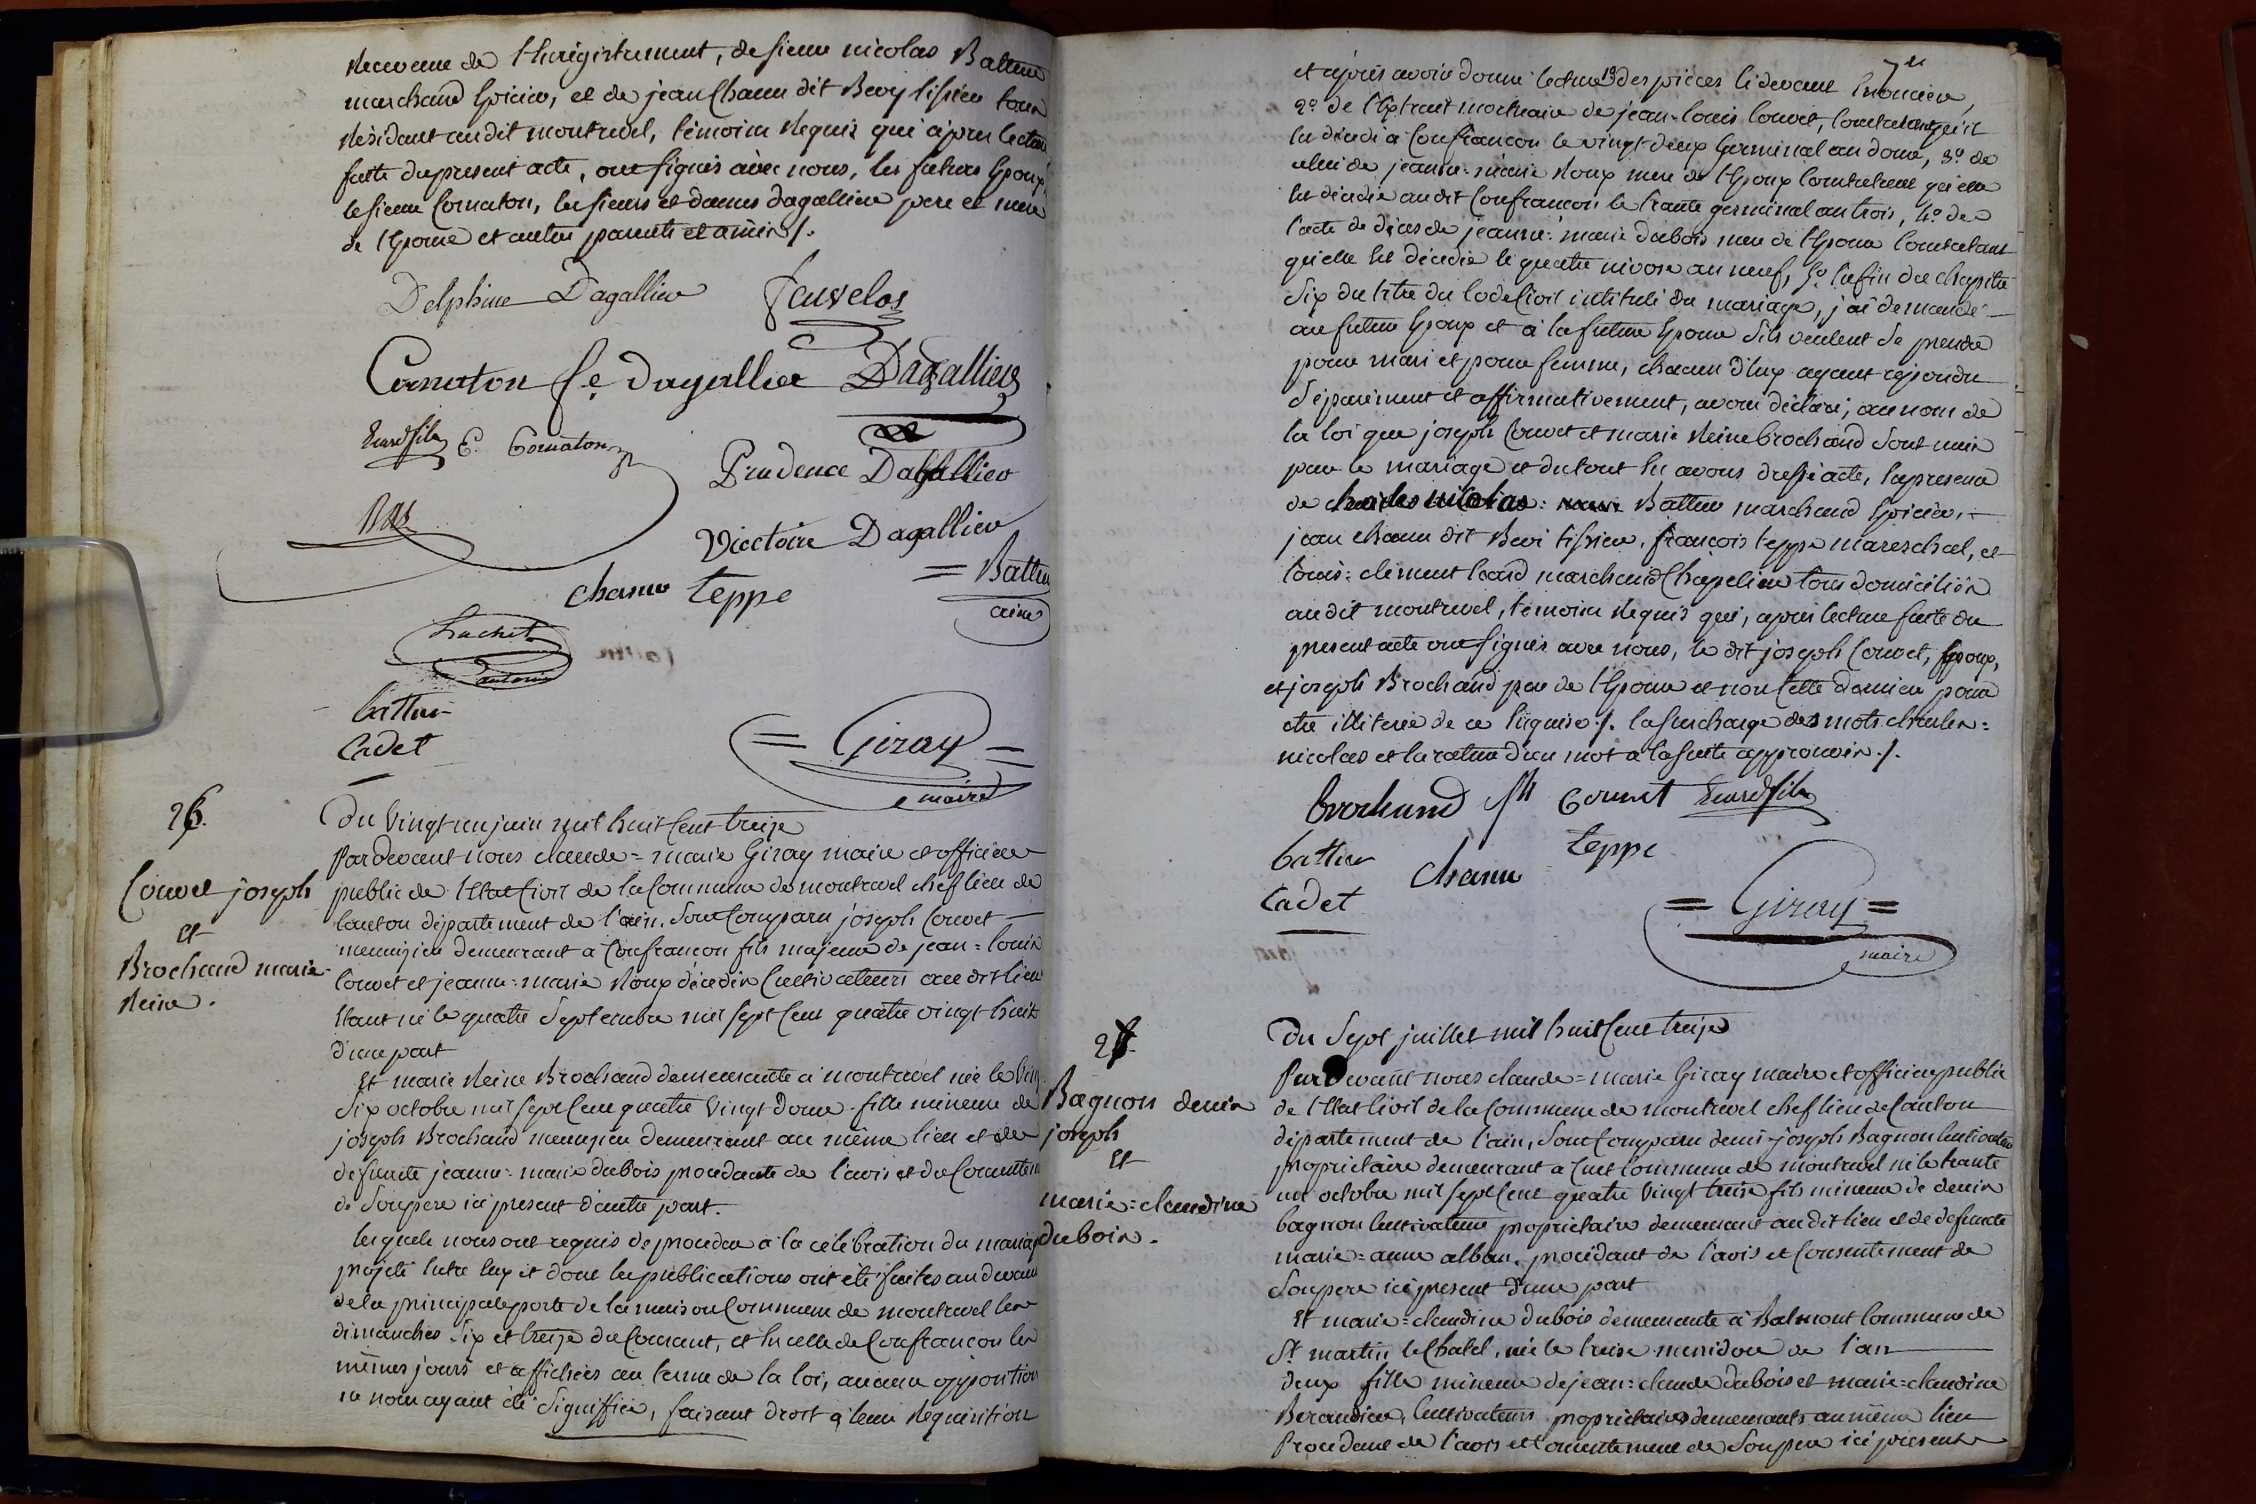 Receveur de l'Enregistrement, de sieur nicolas Battur
marchand Epicier, et de jean Chanu dit Bevy tissieu tous
Résidant au dit montrevel, témoins Requis qui après lecture
faite du present acte, ont signés avec nous, les futurs Epoux,
le sieur Cornaton, les sieurs et dames dagallier pere et mere
de l'Epouse et autres parents et amis ./.
Delphine Dagallier
Cornaton fe dagallier Dagallier
Euard fils E. Cornaton
Prudence Dagallier
Ras
Victoire Dagallier
chanu teppe = Battur
ainé
battur
Cadet
= Giray =
maire
26.
Couvet joseph
et
Brochand marie
Reine.
Du Vingt un juin mil huit Cent treize
Pardevant nous claude=marie Giray maire et officier
public de l'Etat Civil de la Commune de montrevel chef lieu de
Canton département de l'ain. Sont Comparu joseph Couvet
menuisier demeurant a Confrancon fils majeur de jean=louis
Couvet et jeanne=marie Roux décédés Cultivateurs au dit lieu
Etant né le quatre Septembre mil sept Cent quatre vingt huit
d'une part
Et marie Reine Brochand demeurante a montrevel née le Vingt
Six octobre mil sept Cent quatre Vingt douze fille mineure de
joseph Brochand menuisier demeurant au même lieu et de
defunte jeanne=marie dubois procédante de l'avis et du Consentement
de Son pere ici present d'autre part.
lesquels nous ont requis de proceder à la célébration du mariage
projeté Entre Eux et dont les publications ont été faites au devant
de la principale porte de la maison Commune de montrevel les
dimanches Six et treize du Courant, et En celle de Confrancon les
mêmes jours et affichées au terme de la loi, aucune opposition
ne nous ayant été Signiffiée, faisant droit a leur Requisition
7e
et après avoir donné lecture 1º des pièces Ci devant Enoncées,
2º de l'Extrait mortuaire de jean-louis Couvet, Constatant qu'il
Est décédé à Confrancon le vingt deux Germinal an douze, 3º de
celui de jeanne=marie Roux mere de l'Epoux Constatant qu'elle
Est décédée au dit Confrancon le trente germinal an trois, 4º de
l'acte de décès de jeanne=marie dubois mere de l'Epouse Constatant
qu'elle Est décédée le quatre nivose an neuf, 5º Enfin du chapitre
Six du titre du Code Civil intitulé du mariage, j'ai demandé
au futur Epoux et à la future Epouse S'ils veulent Se prendre
pour mari et pour femme, chacun d'Eux ayant repondu
Séparément et affirmativement, avons déclaré, au nom de
la loi que joseph Couvet et marie Reine Brochand Sont unis
par le mariage et du tout En avons dressé acte, En presence
de charles nicolas Battur marchand Epicier,
jean chanu dit Bevi tissieu, françois teppe mareschal, et
louis=clément Euard marchand Chapelier tous domiciliés
au dit montrevel, témoins Requis qui, après lecture faite du
present acte ont signés avec nous, le dit joseph Couvet, Epoux,
et joseph Brochand pere de l'Epouse et non Cette derniere pour
être illiterée de ce Enquise ./. la surcharge des mots charles=
nicolas et la rature d'un mot a la suite approuvés ./.
brochand jh Couvet Euard fils
battur chanu teppe
Cadet
= Giray =
maire
Bagnon denis
joseph
Et
marie=claudine
dubois.
Du Sept juillet mil huit Cent treize
Par Devant nous claude=marie Giray maire et officier public
de l'Etat Civil de la Commune de montrevel chef lieu de Canton
département de l'ain, Sont Comparu denis-joseph Bagnon Cultivateur
proprietaire demeurant a Cuet Commune de montrevel né le trente
un octobre mil sept Cent quatre Vingt treize fils mineur de denis
bagnon Cultivateur proprietaire demeurant au dit lieu et de defunte
marie=anne alban, procédant de l'avis et Consentement de
Son pere ici present d'une part
Et marie=claudine dubois demeurante à Balmont Commune de
St martin le Chatel, née le treize messidor de l'an
deux fille mineure de jean=claude dubois et marie=claudine
Beraudier, Cultivateurs proprietaires demeurants au même lieu
Procédant de l'avis et Consentement de Son pere ici present